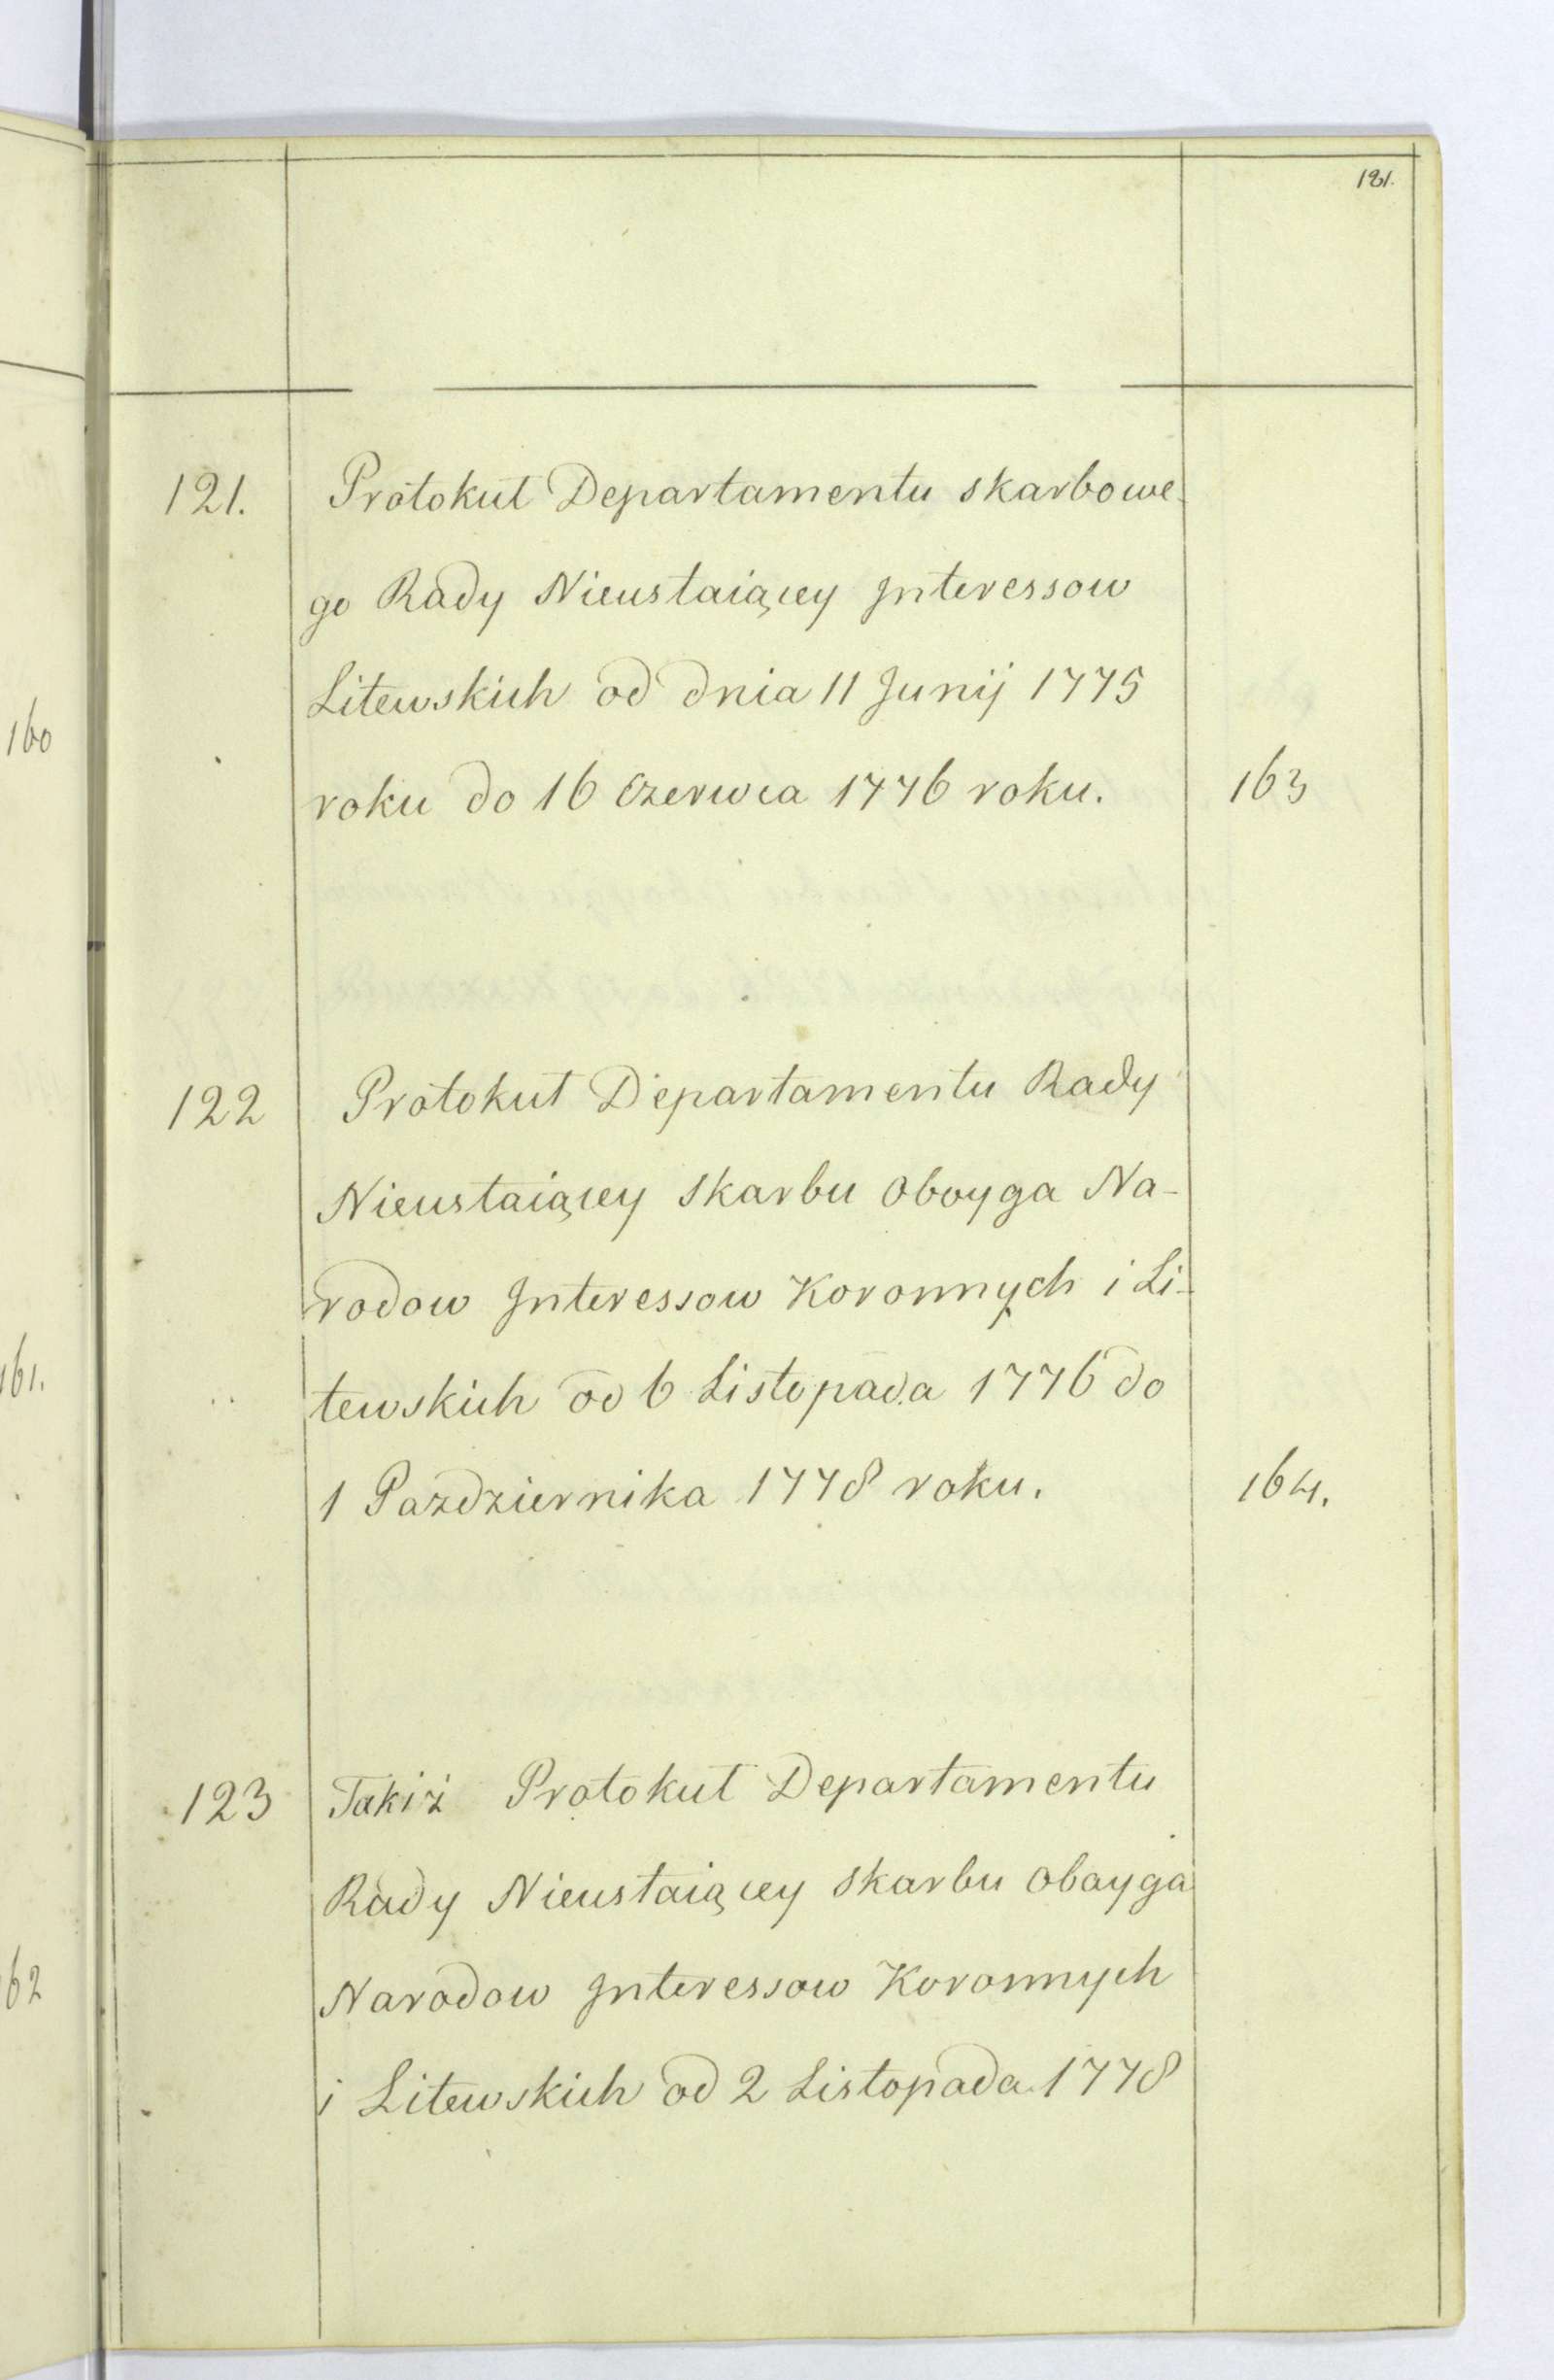 181.
121. Protokuł Departamentu skarbowe-
go Rady Nieustaiącey Jnteressow
Litewskich od dnia 11 Junij 1775
roku do 16 Czerwca 1776 roku. 163
122 Protokuł Departamentu Rady
Nieustaiącey Skarbu Oboyga Na-
rodow Jnteressow Koronnych i Li-
tewskich od 6 Listopada 1776 do
1 Pazdziernika 1778 roku. 164.
123 Takiż Protokuł Departamentu
Rady Nieustaiącey Skarbu Oboyga
Narodow Jnteressow Koronnych
i Litewskich od 2 Listopada 1778
160
161.
162